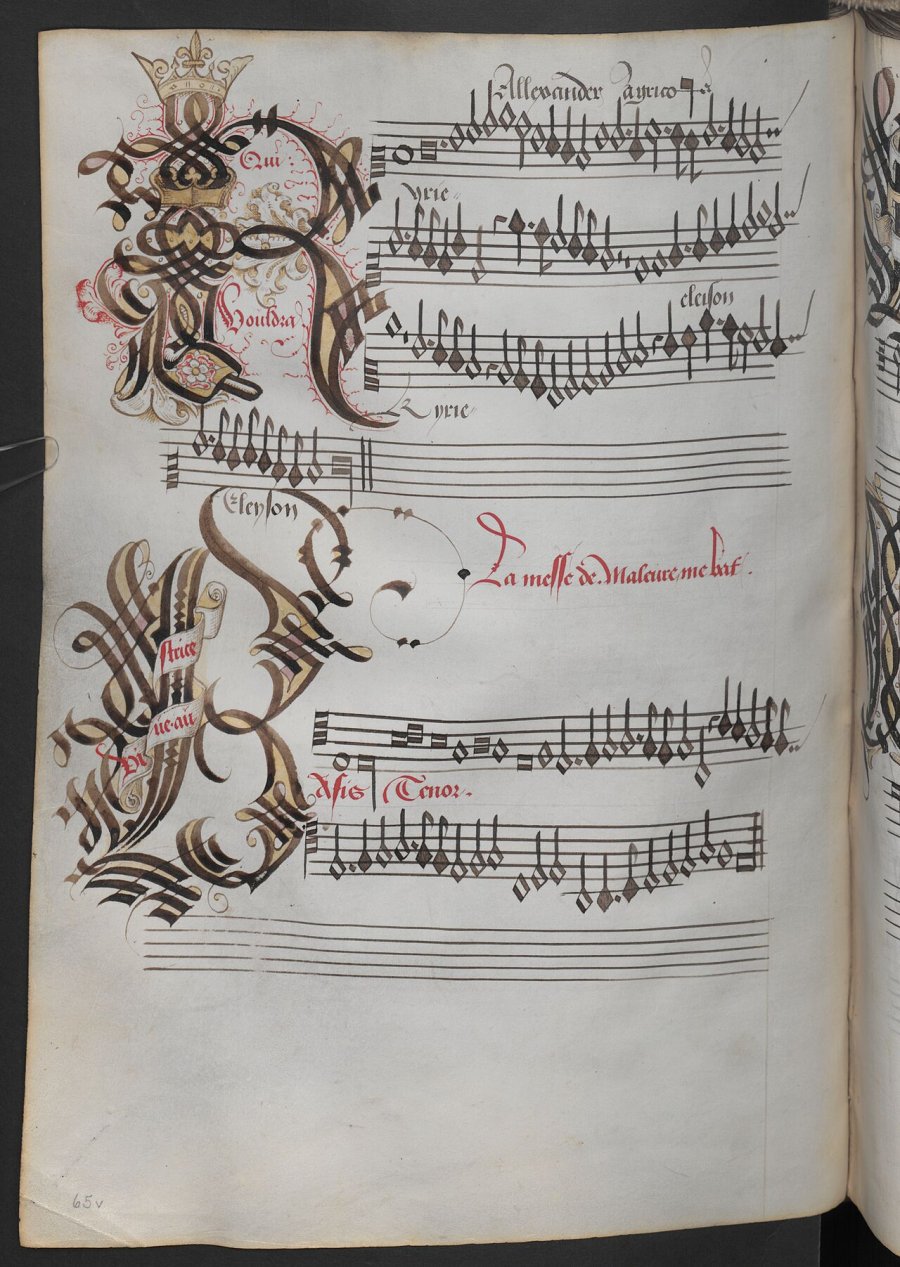 Allexander Agrico
Qui
yrie
Vouldra
eleison
Kyrie
Eleyson
La messe de Maleure me bat.
strice
ne au
Asis Tenor.
65v